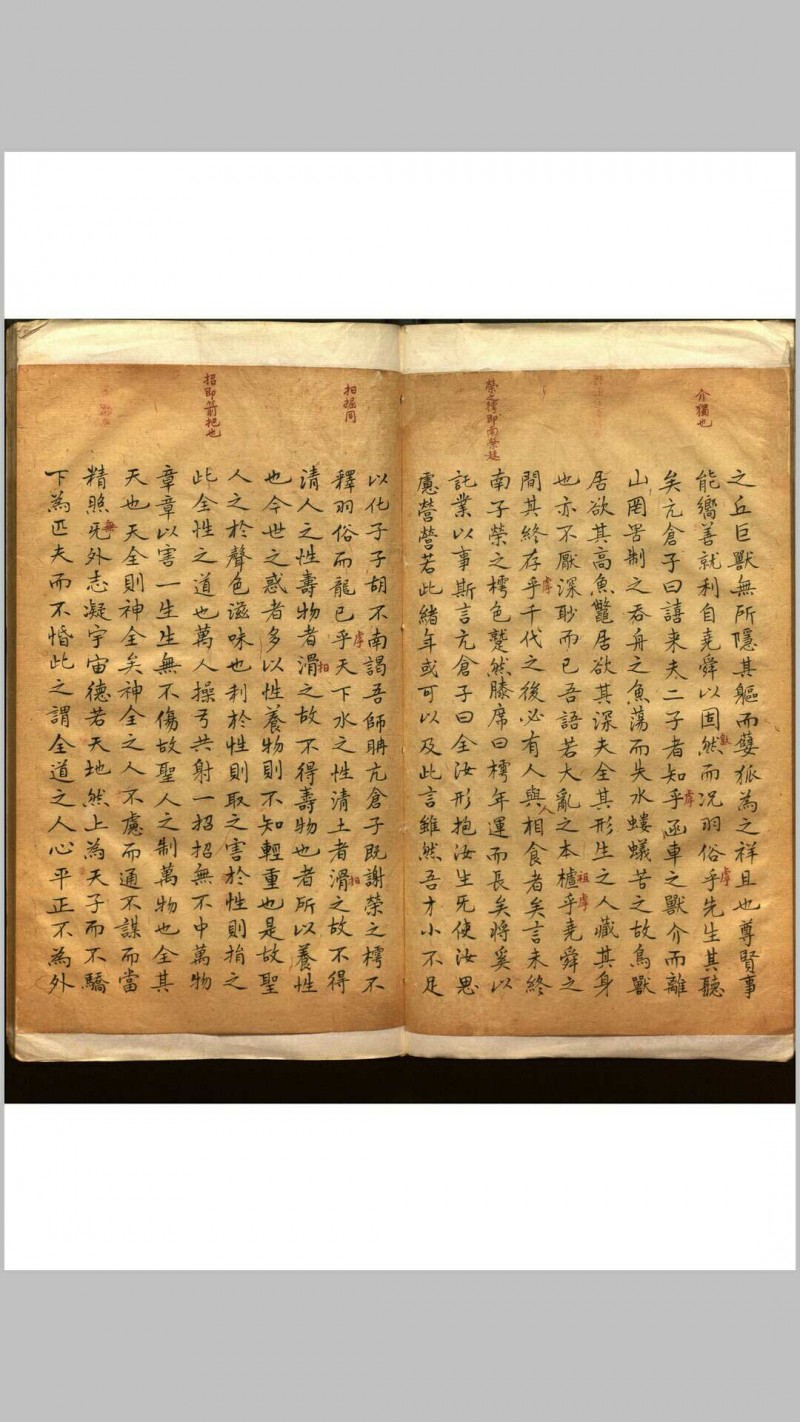 介獨也
榮之樗即南榮趎
之丘巨獸無所隱其軀而㜸狐為之祥且也尊賢事
能嚮善就利自堯舜以固然而况羽俗乎先生其聽
矣亢倉子曰譆来夫二子者知乎函車之獸介而離
山罔罟制之吞舟之魚蕩而失水螻蟻苦之故鳥獸
居欲其高魚鼈居欲其深夫全其形生之人藏其身
也亦不厭深眇而已吾語若大亂之本櫨乎堯舜之
間其終存乎千代之後必有人與人相食者矣言未終
南子榮之樗色蹵然膝席曰樗年運而長矣將奚以
託業以事斯言亢倉子曰全汝形抱汝生旡使汝思
慮營營若此緒年或可以及此言雖然吾才小不足
抇掘同
招即箭把也
以化子子胡不南謁吾師聃亢倉子既謝榮之樗不
釋羽俗而龍已乎天下水之性清土者滑之故不得
清人之性壽物者滑之故不得壽物也者所以養性
也今世之惑者多以性養物則不知輕重也是故聖
人之於聲色滋味也利於性則取之害於性則捐之
此全性之道也萬人操弓共射一招招無不中萬物
章章以害一生生無不傷故聖人之制萬物也全其
天也天全則神全矣神全之人不慮而通不謀而當
精照旡外志凝宇宙德若天地然上為天子而不驕
下為匹夫而不惛此之謂全道之人心平正不為外